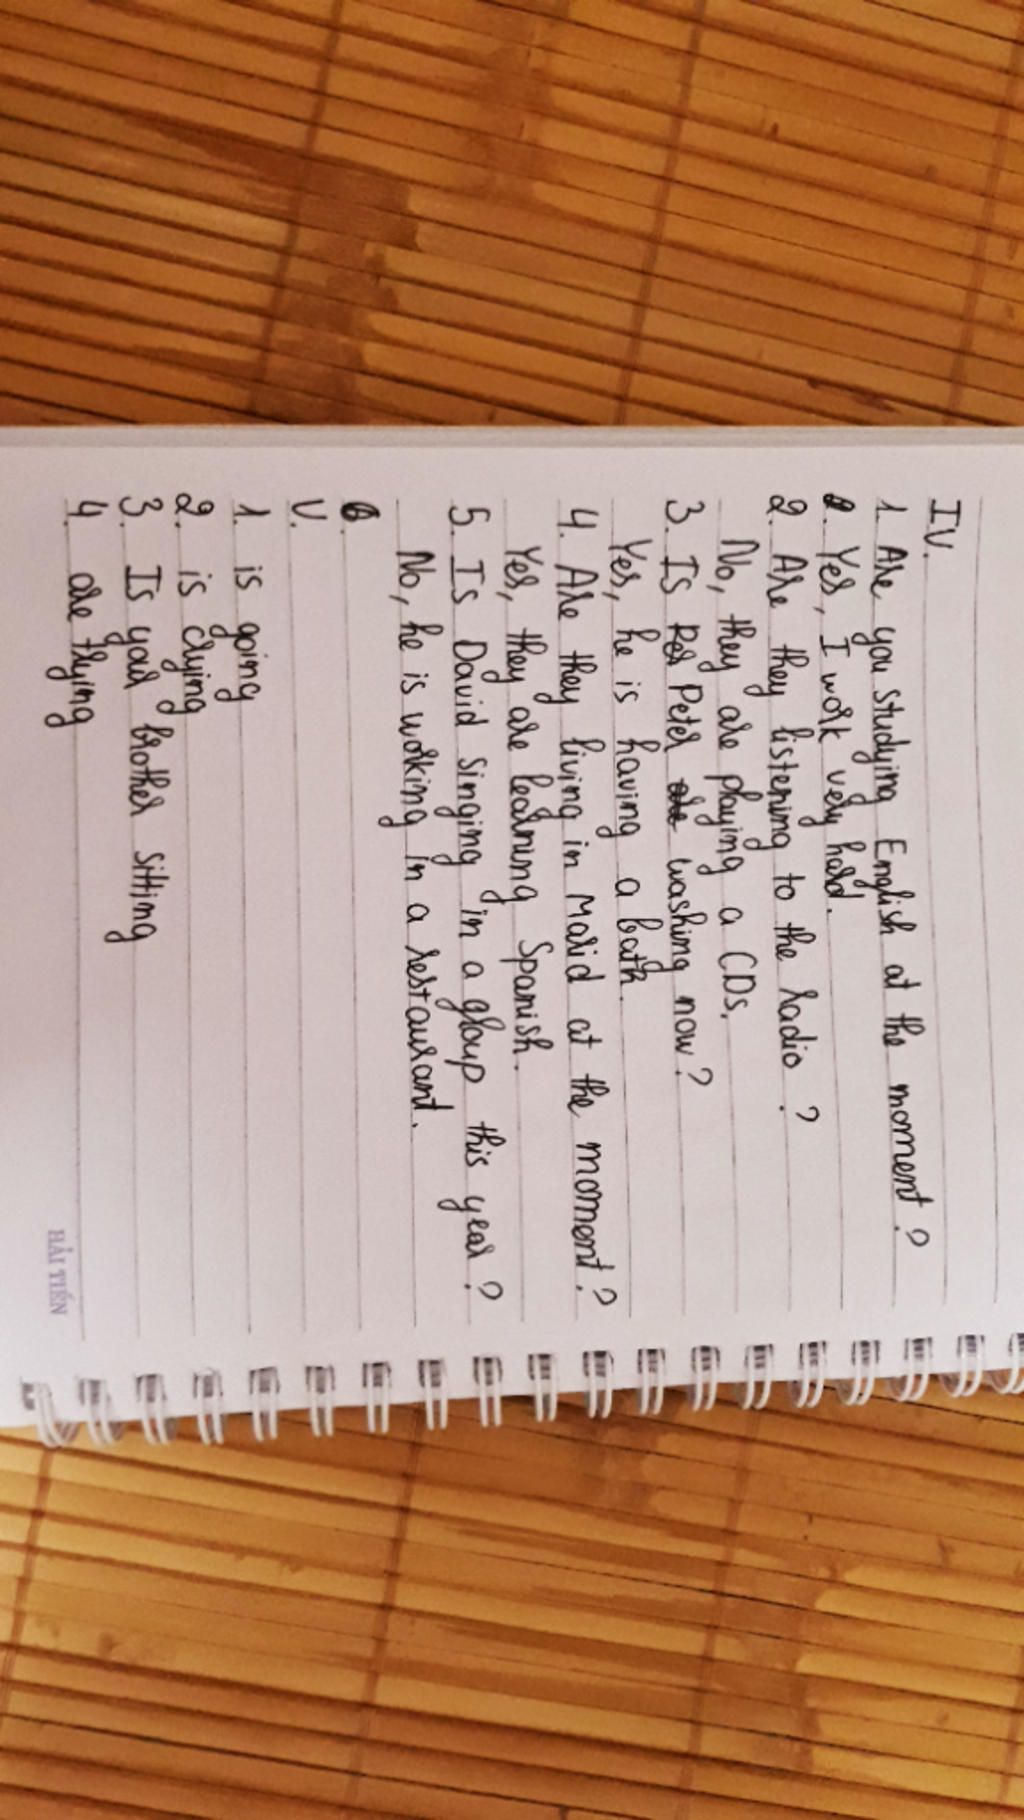 IV.
1. Are you studying English at the moment?
Yes, I work very hard.
2. Are they listening to the radio?
No, they are playing a CDs.
3. Is Peter washing now?
Yes, he is having a bath.
4. Are they living in Marid at the moment?
Yes, they are learning Spanish.
5. Is David singing in a group this year?
No, he is working in a restaurant.
6.
V.
1. is going
2. is crying
3. Is your brother sitting
4. are trying
HẢI TIẾN